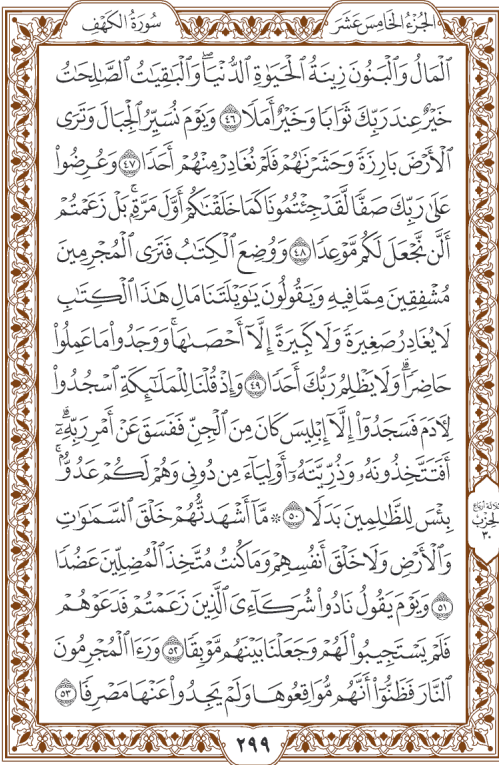 الجُزْءُ الخَامِسَ عَشَرَ
سُورَةُ الكَهْفِ
ٱلْمَالُ وَٱلْبَنُونَ زِينَةُ ٱلْحَيَوٰةِ ٱلدُّنْيَاۖ وَٱلْبَٰقِيَٰتُ ٱلصَّٰلِحَٰتُ
خَيْرٌ عِندَ رَبِّكَ ثَوَابًا وَخَيْرٌ أَمَلًا ٤٦ وَيَوْمَ نُسَيِّرُ ٱلْجِبَالَ وَتَرَى
ٱلْأَرْضَ بَارِزَةً وَحَشَرْنَٰهُمْ فَلَمْ نُغَادِرْ مِنْهُمْ أَحَدًا ٤٧ وَعُرِضُوا۟
عَلَىٰ رَبِّكَ صَفًّا لَّقَدْ جِئْتُمُونَا كَمَا خَلَقْنَٰكُمْ أَوَّلَ مَرَّةٍۭۚ بَلْ زَعَمْتُمْ
أَلَّن نَّجْعَلَ لَكُم مَّوْعِدًا ٤٨ وَوُضِعَ ٱلْكِتَٰبُ فَتَرَى ٱلْمُجْرِمِينَ
مُشْفِقِينَ مِمَّا فِيهِ وَيَقُولُونَ يَٰوَيْلَتَنَا مَالِ هَٰذَا ٱلْكِتَٰبِ
لَا يُغَادِرُ صَغِيرَةً وَلَا كَبِيرَةً إِلَّآ أَحْصَىٰهَاۚ وَوَجَدُوا۟ مَا عَمِلُوا۟
حَاضِرًاۗ وَلَا يَظْلِمُ رَبُّكَ أَحَدًا ٤٩ وَإِذْ قُلْنَا لِلْمَلَٰٓئِكَةِ ٱسْجُدُوا۟
لِءَادَمَ فَسَجَدُوٓا۟ إِلَّآ إِبْلِيسَ كَانَ مِنَ ٱلْجِنِّ فَفَسَقَ عَنْ أَمْرِ رَبِّهِۦٓۗ
أَفَتَتَّخِذُونَهُۥ وَذُرِّيَّتَهُۥٓ أَوْلِيَآءَ مِن دُونِى وَهُمْ لَكُمْ عَدُوٌّۢۚ
بِئْسَ لِلظَّٰلِمِينَ بَدَلًا ٥٠ ۞ مَّآ أَشْهَدتُّهُمْ خَلْقَ ٱلسَّمَٰوَٰتِ
وَٱلْأَرْضِ وَلَا خَلْقَ أَنفُسِهِمْ وَمَا كُنتُ مُتَّخِذَ ٱلْمُضِلِّينَ عَضُدًا
٥١ وَيَوْمَ يَقُولُ نَادُوا۟ شُرَكَآءِىَ ٱلَّذِينَ زَعَمْتُمْ فَدَعَوْهُمْ
فَلَمْ يَسْتَجِيبُوا۟ لَهُمْ وَجَعَلْنَا بَيْنَهُم مَّوْبِقًا ٥٢ وَرَءَا ٱلْمُجْرِمُونَ
ٱلنَّارَ فَظَنُّوٓا۟ أَنَّهُم مُّوَاقِعُوهَا وَلَمْ يَجِدُوا۟ عَنْهَا مَصْرِفًا ٥٣
ثلاثة أرباع
الحزب
٣٠
٢٩٩